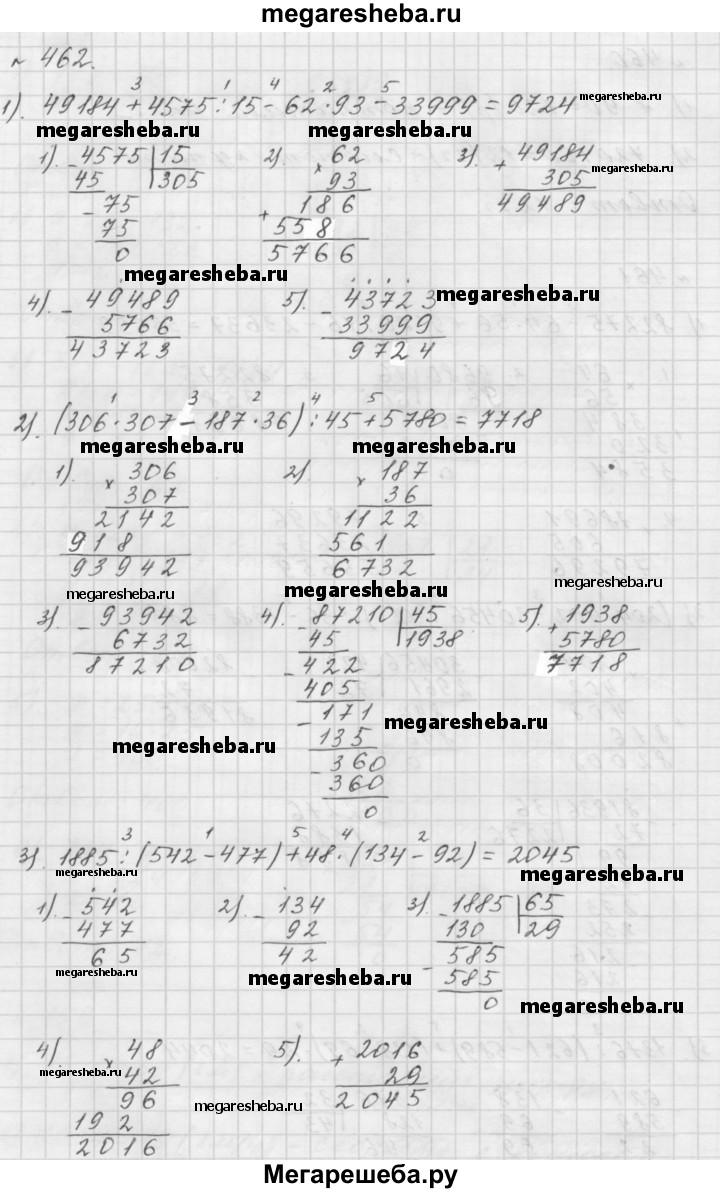 megaresheba.ru
№ 462.
3 1 4 2 5
1). 49184 + 4575 : 15 - 62 · 93 - 33999 = 9724 megaresheba.ru
megaresheba.ru megaresheba.ru
1). - 4575 | 15 2). × 62 3). + 49184
45 | 305 93 305 megaresheba.ru
- 75 186 49489
75 + 558
0 5766
megaresheba.ru
4). - 49489 5). - 43723 megaresheba.ru
5766 33999
43723 9724
1 3 2 4 5
2). (306 · 307 - 187 · 36) : 45 + 5780 = 7718
megaresheba.ru megaresheba.ru
1). × 306 2) × 187
307 36
2142 1122
918 561
93942 6732
megaresheba.ru megaresheba.ru megaresheba.ru
3). - 93942 4). - 87210 | 45 5). + 1938
6732 45 | 1938 5780
87210 - 422 7718
405
- 171
megaresheba.ru
135
megaresheba.ru
- 360
360
0
3 1 5 4 2
3). 1885 : (542 - 477) + 48 · (134 - 92) = 2045
megaresheba.ru megaresheba.ru
1). - 542 2). - 134 3). - 1885 | 65
477 92 130 | 29
65 42 - 585
megaresheba.ru megaresheba.ru 585
0 megaresheba.ru
4). × 48 5). + 2016
megaresheba.ru 42 29
96 2045
megaresheba.ru
192
2016
Мегарешеба.ру